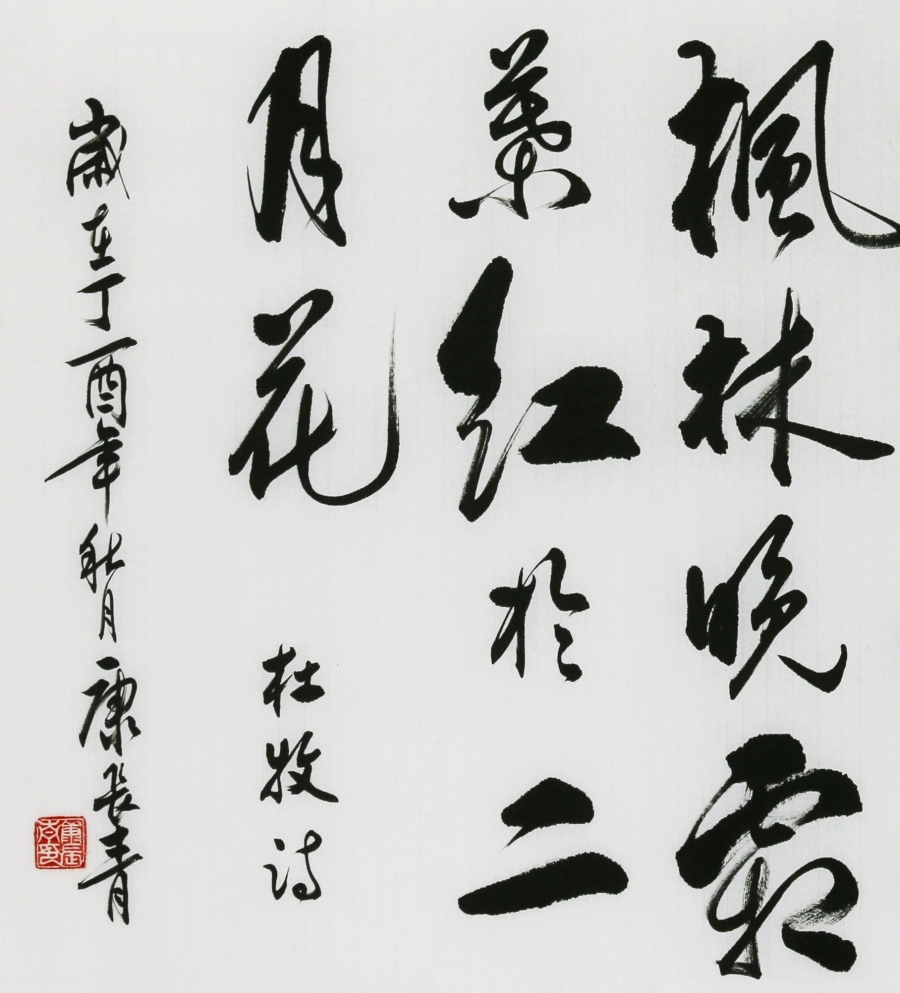 楓林晚霜
葉紅於二
月花
杜牧詩
歲在丁酉年秋月康長青